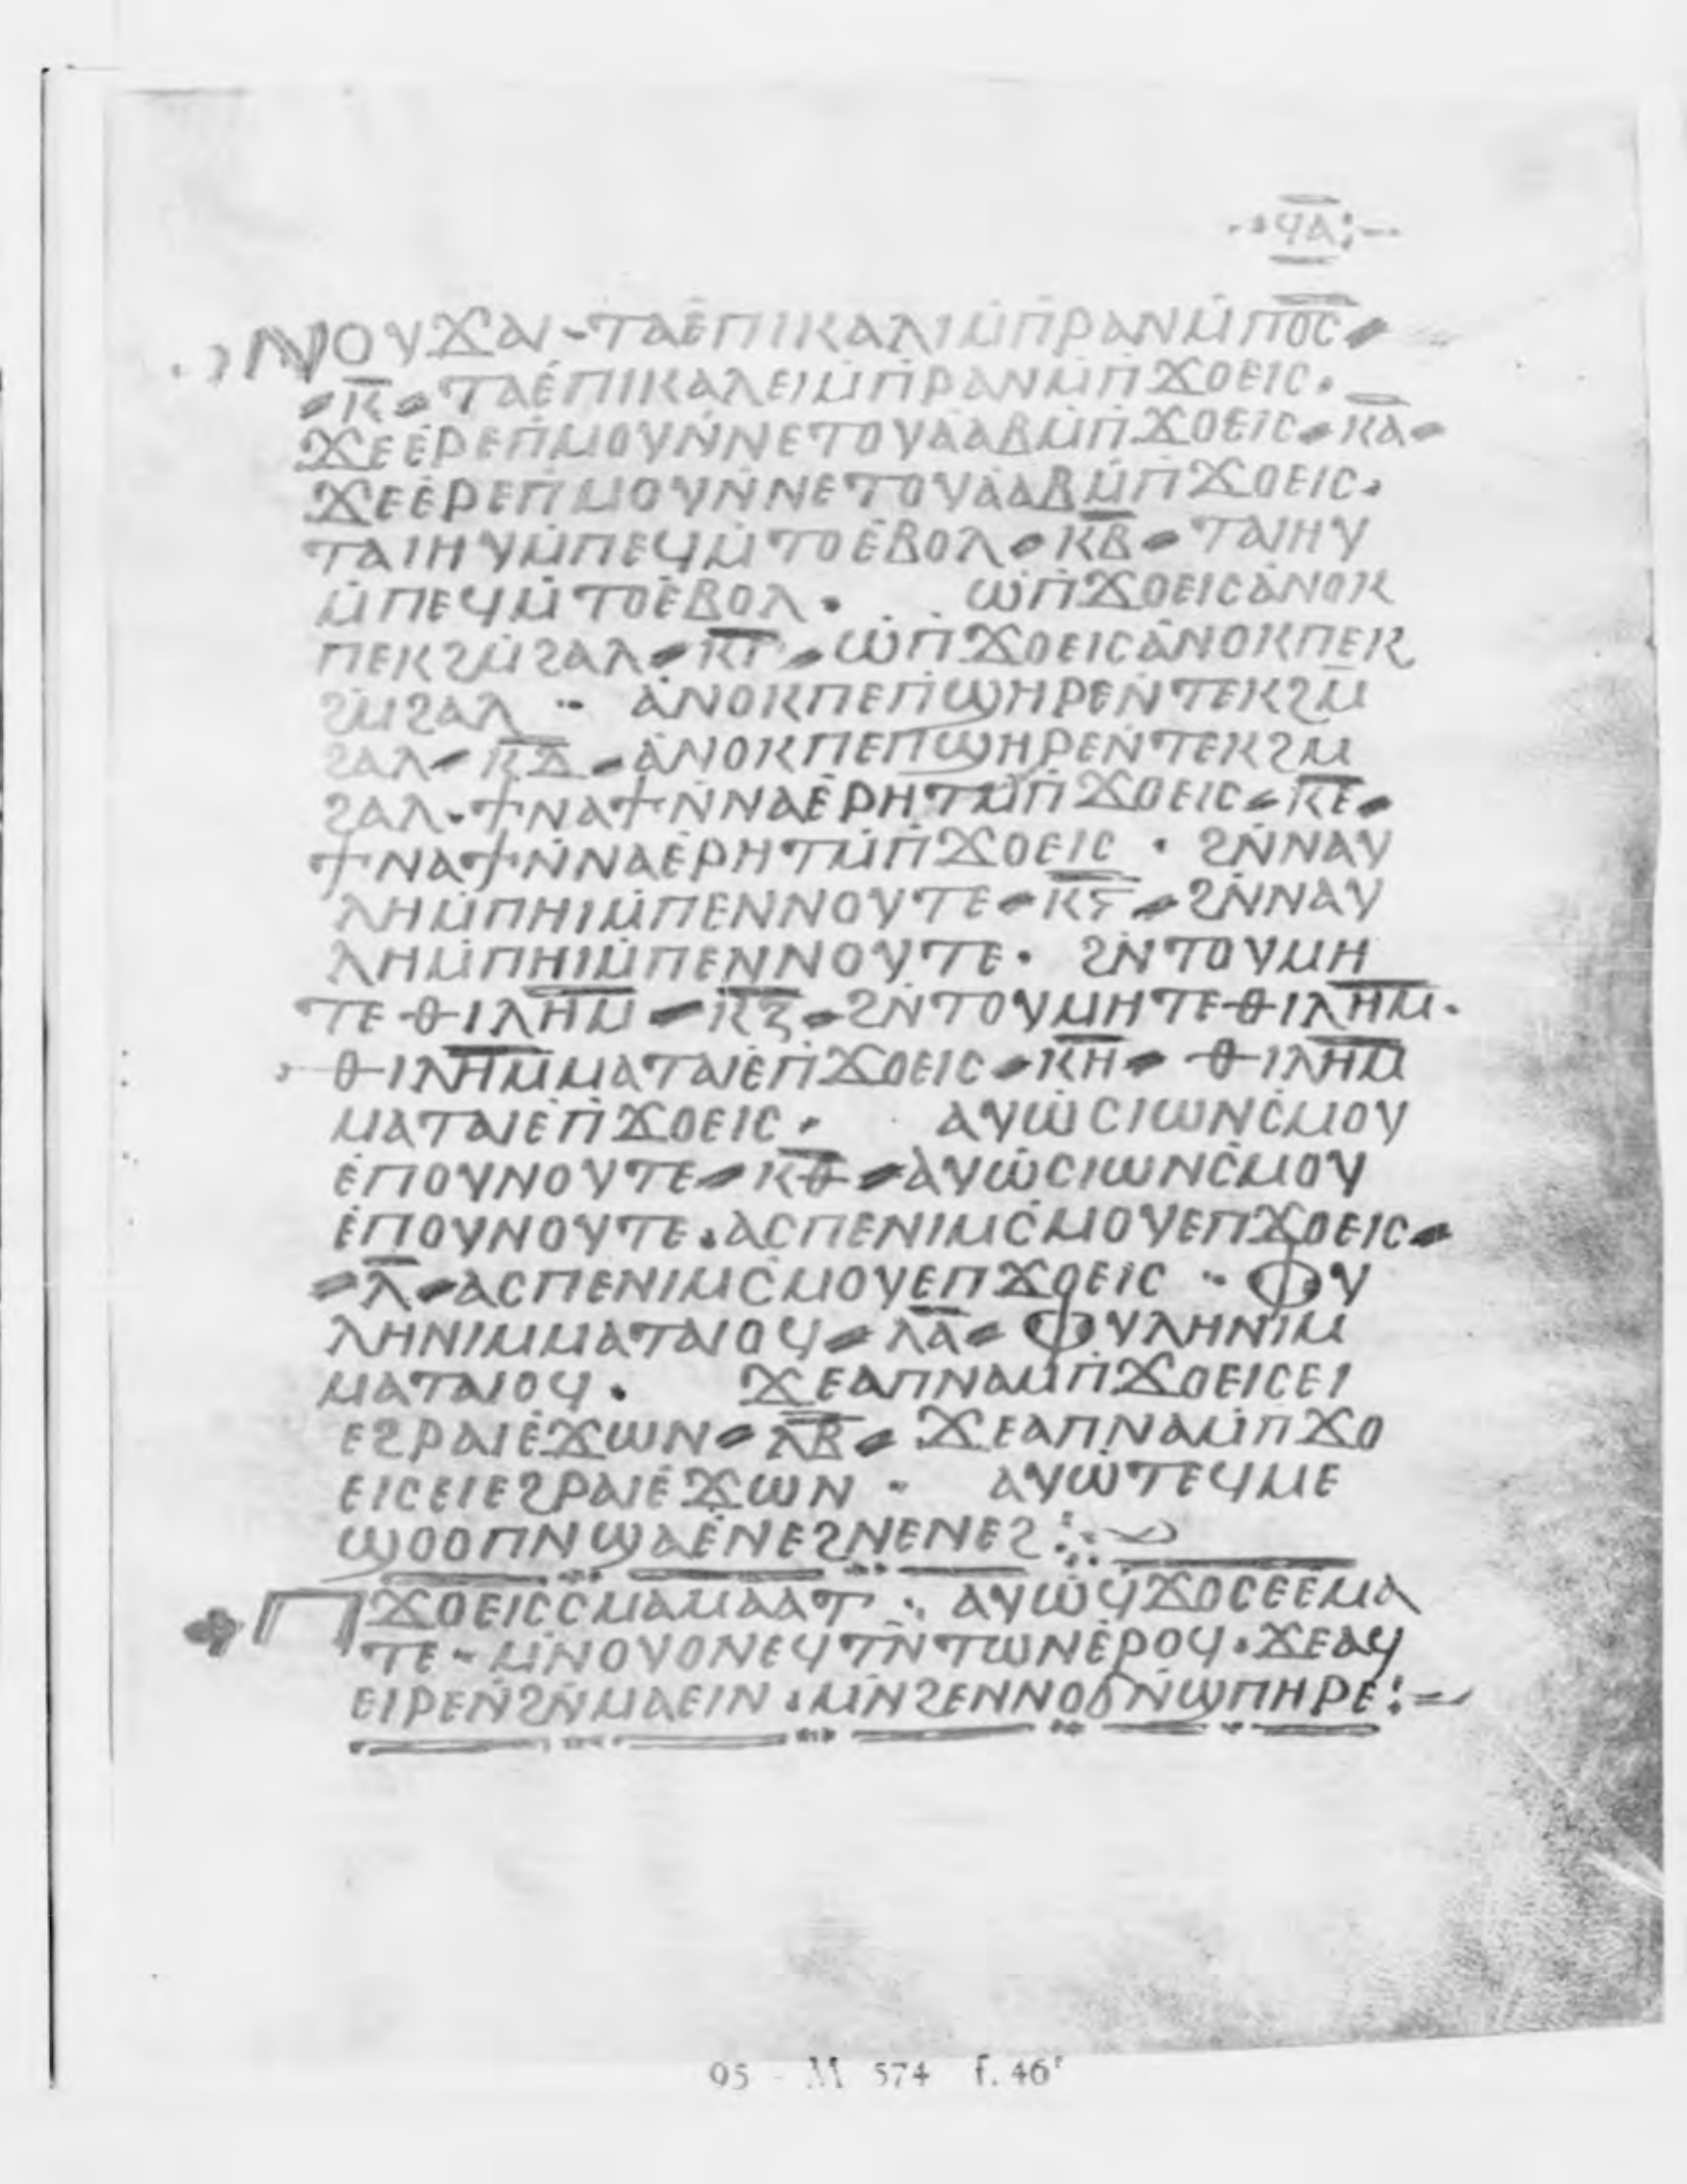 ϥⲁ
ⲛⲟⲩϫⲁⲓ ⲧⲁⲉ̇ⲡⲓⲕⲁⲗⲓⲙ̇ⲡ̇ⲣⲁⲛⲙ̇ⲡⲟ̅ⲥ̅
ⲕ̅ ⲧⲁⲉ̇ⲡⲓⲕⲁⲗⲉⲓⲙ̇ⲡ̇ⲣⲁⲛⲙ̇ⲡ̇ϫⲟⲉⲓⲥ·
ϫⲉⲉ̇ⲣⲉⲡ̇ⲙⲟⲩⲛ̇ⲛⲉⲧⲟⲩⲁ̇ⲁⲃⲙ̇ⲡ̇ϫⲟⲉⲓⲥ ⲕⲁ̅
ϫⲉⲉ̇ⲣⲉⲡ̇ⲙⲟⲩⲛ̇ⲛⲉⲧⲟⲩⲁ̇ⲁⲃⲙ̇ⲡ̇ϫⲟⲉⲓⲥ·
ⲧⲁⲓⲏⲩⲙ̇ⲡⲉϥⲙ̇ⲧⲟⲉ̇ⲃⲟⲗ ⲕⲃ̅ ⲧⲁⲓⲏⲩ
ⲙ̇ⲡⲉϥⲙ̇ⲧⲟⲉ̇ⲃⲟⲗ· ⲱⲡ̇ϫⲟⲉⲓⲥⲁ̇ⲛⲟⲕ
ⲡⲉⲕϩⲙ̇ϩⲁⲗ ⲕⲅ̅ ⲱ̇ⲡ̇ϫⲟⲉⲓⲥⲁ̇ⲛⲟⲕⲡⲉⲕ
ϩⲙ̇ϩⲁⲗ ·· ⲁ̇ⲛⲟⲕⲡⲉⲡ̇ϣⲏⲣⲉⲛ̇ⲧⲉⲕϩⲙ̅
ϩⲁⲗ ⲕⲇ̅ ⲁ̇ⲛⲟⲕⲡⲉⲡϣⲏⲣⲉⲛ̇ⲧⲉⲕϩⲙ
ϩⲁⲗ·ϯⲛⲁϯⲛ̇ⲛⲁⲉ̇ⲣⲏⲧⲙ̇ⲡ̇ϫⲟⲉⲓⲥ ⲕⲉ̅
ϯⲛⲁϯⲛ̇ⲛⲁⲉ̇ⲣⲏⲧⲙ̇ⲡ̇ϫⲟⲉⲓⲥ · ϩⲛ̇ⲛⲁⲩ
ⲗⲏⲙ̇ⲡⲏⲓⲙ̇ⲡⲉⲛⲛⲟⲩⲧⲉ ⲕⲋ̅ ϩⲛ̇ⲛⲁⲩ
ⲗⲏⲙ̇ⲡⲏⲓⲙ̇ⲡⲉⲛⲛⲟⲩⲧⲉ· ϩⲛ̇ⲧⲟⲩⲙⲏ
ⲧⲉⲑⲓⲗ̅ⲏ̅ⲙ̅ ⲕⲍ̅ ϩⲛ̇ⲧⲟⲩⲙⲏⲧⲉⲑⲓⲗ̅ⲏ̅ⲙ̅·
ⲑⲓⲗ̅ⲏ̅ⲙ̅ⲙⲁⲧⲁⲓⲉ̇ⲡ̇ϫⲟⲉⲓⲥ ⲕⲏ̅ ⲑⲓⲗ̅ⲏ̅ⲙ̅
ⲙⲁⲧⲁⲓⲉ̇ⲡ̇ϫⲟⲉⲓⲥ· ⲁⲩⲱ̇ⲥⲓⲱⲛⲥ̇ⲙⲟⲩ
ⲉ̇ⲡⲟⲩⲛⲟⲩⲧⲉ ⲕⲑ̅ ⲁⲩⲱ̇ⲥⲓⲱⲛⲥ̇ⲙⲟⲩ
ⲉ̇ⲡⲟⲩⲛⲟⲩⲧⲉ·ⲁⲥⲡⲉⲛⲓⲙⲥ̇ⲙⲟⲩⲉⲡϫⲟⲉⲓⲥ
ⲗ̅ ⲁⲥⲡⲉⲛⲓⲙⲥ̇ⲙⲟⲩⲉⲡϫⲟⲉⲓⲥ ·· ⲫⲩ
ⲗⲏⲛⲓⲙⲙⲁⲧⲁⲓⲟϥ ⲗⲁ̅ ⲫⲩⲗⲏⲛⲓⲙ
ⲙⲁⲧⲁⲓⲟϥ· ϫⲉⲁⲡⲛⲁⲙ̇ⲡ̇ϫⲟⲉⲓⲥⲉⲓ
ⲉϩⲣⲁⲓⲉ̇ϫⲱⲛ ⲗⲃ̅ ϫⲉⲁⲡⲛⲁⲙ̇ⲡ̇ϫⲟ
ⲉⲓⲥⲉⲓⲉϩⲣⲁⲓⲉ̇ϫⲱⲛ · ⲁⲩⲱ̇ⲧⲉϥⲙⲉ
ϣⲟⲟⲡⲛϣⲁⲉ̇ⲛⲉϩⲛⲉⲛⲉϩ
ⲡϫⲟⲉⲓⲥⲥⲙⲁⲙⲁⲁⲧ · ⲁⲩⲱ̇ϥϫⲟⲥⲉⲉ̇ⲙⲁ
ⲧⲉ·ⲙ̇ⲛⲟⲩⲟⲛⲉϥⲧⲛ̇ⲧⲱⲛⲉ̇ⲣⲟϥ·ϫⲉⲁϥ
ⲉⲓⲣⲉⲛ̇ϩⲛ̇ⲙⲁⲉⲓⲛ·ⲙⲛ̇ϩⲉⲛⲛⲟϭⲛ̇ϣⲡⲏⲣⲉ
95 - M 574 f. 46ʳ